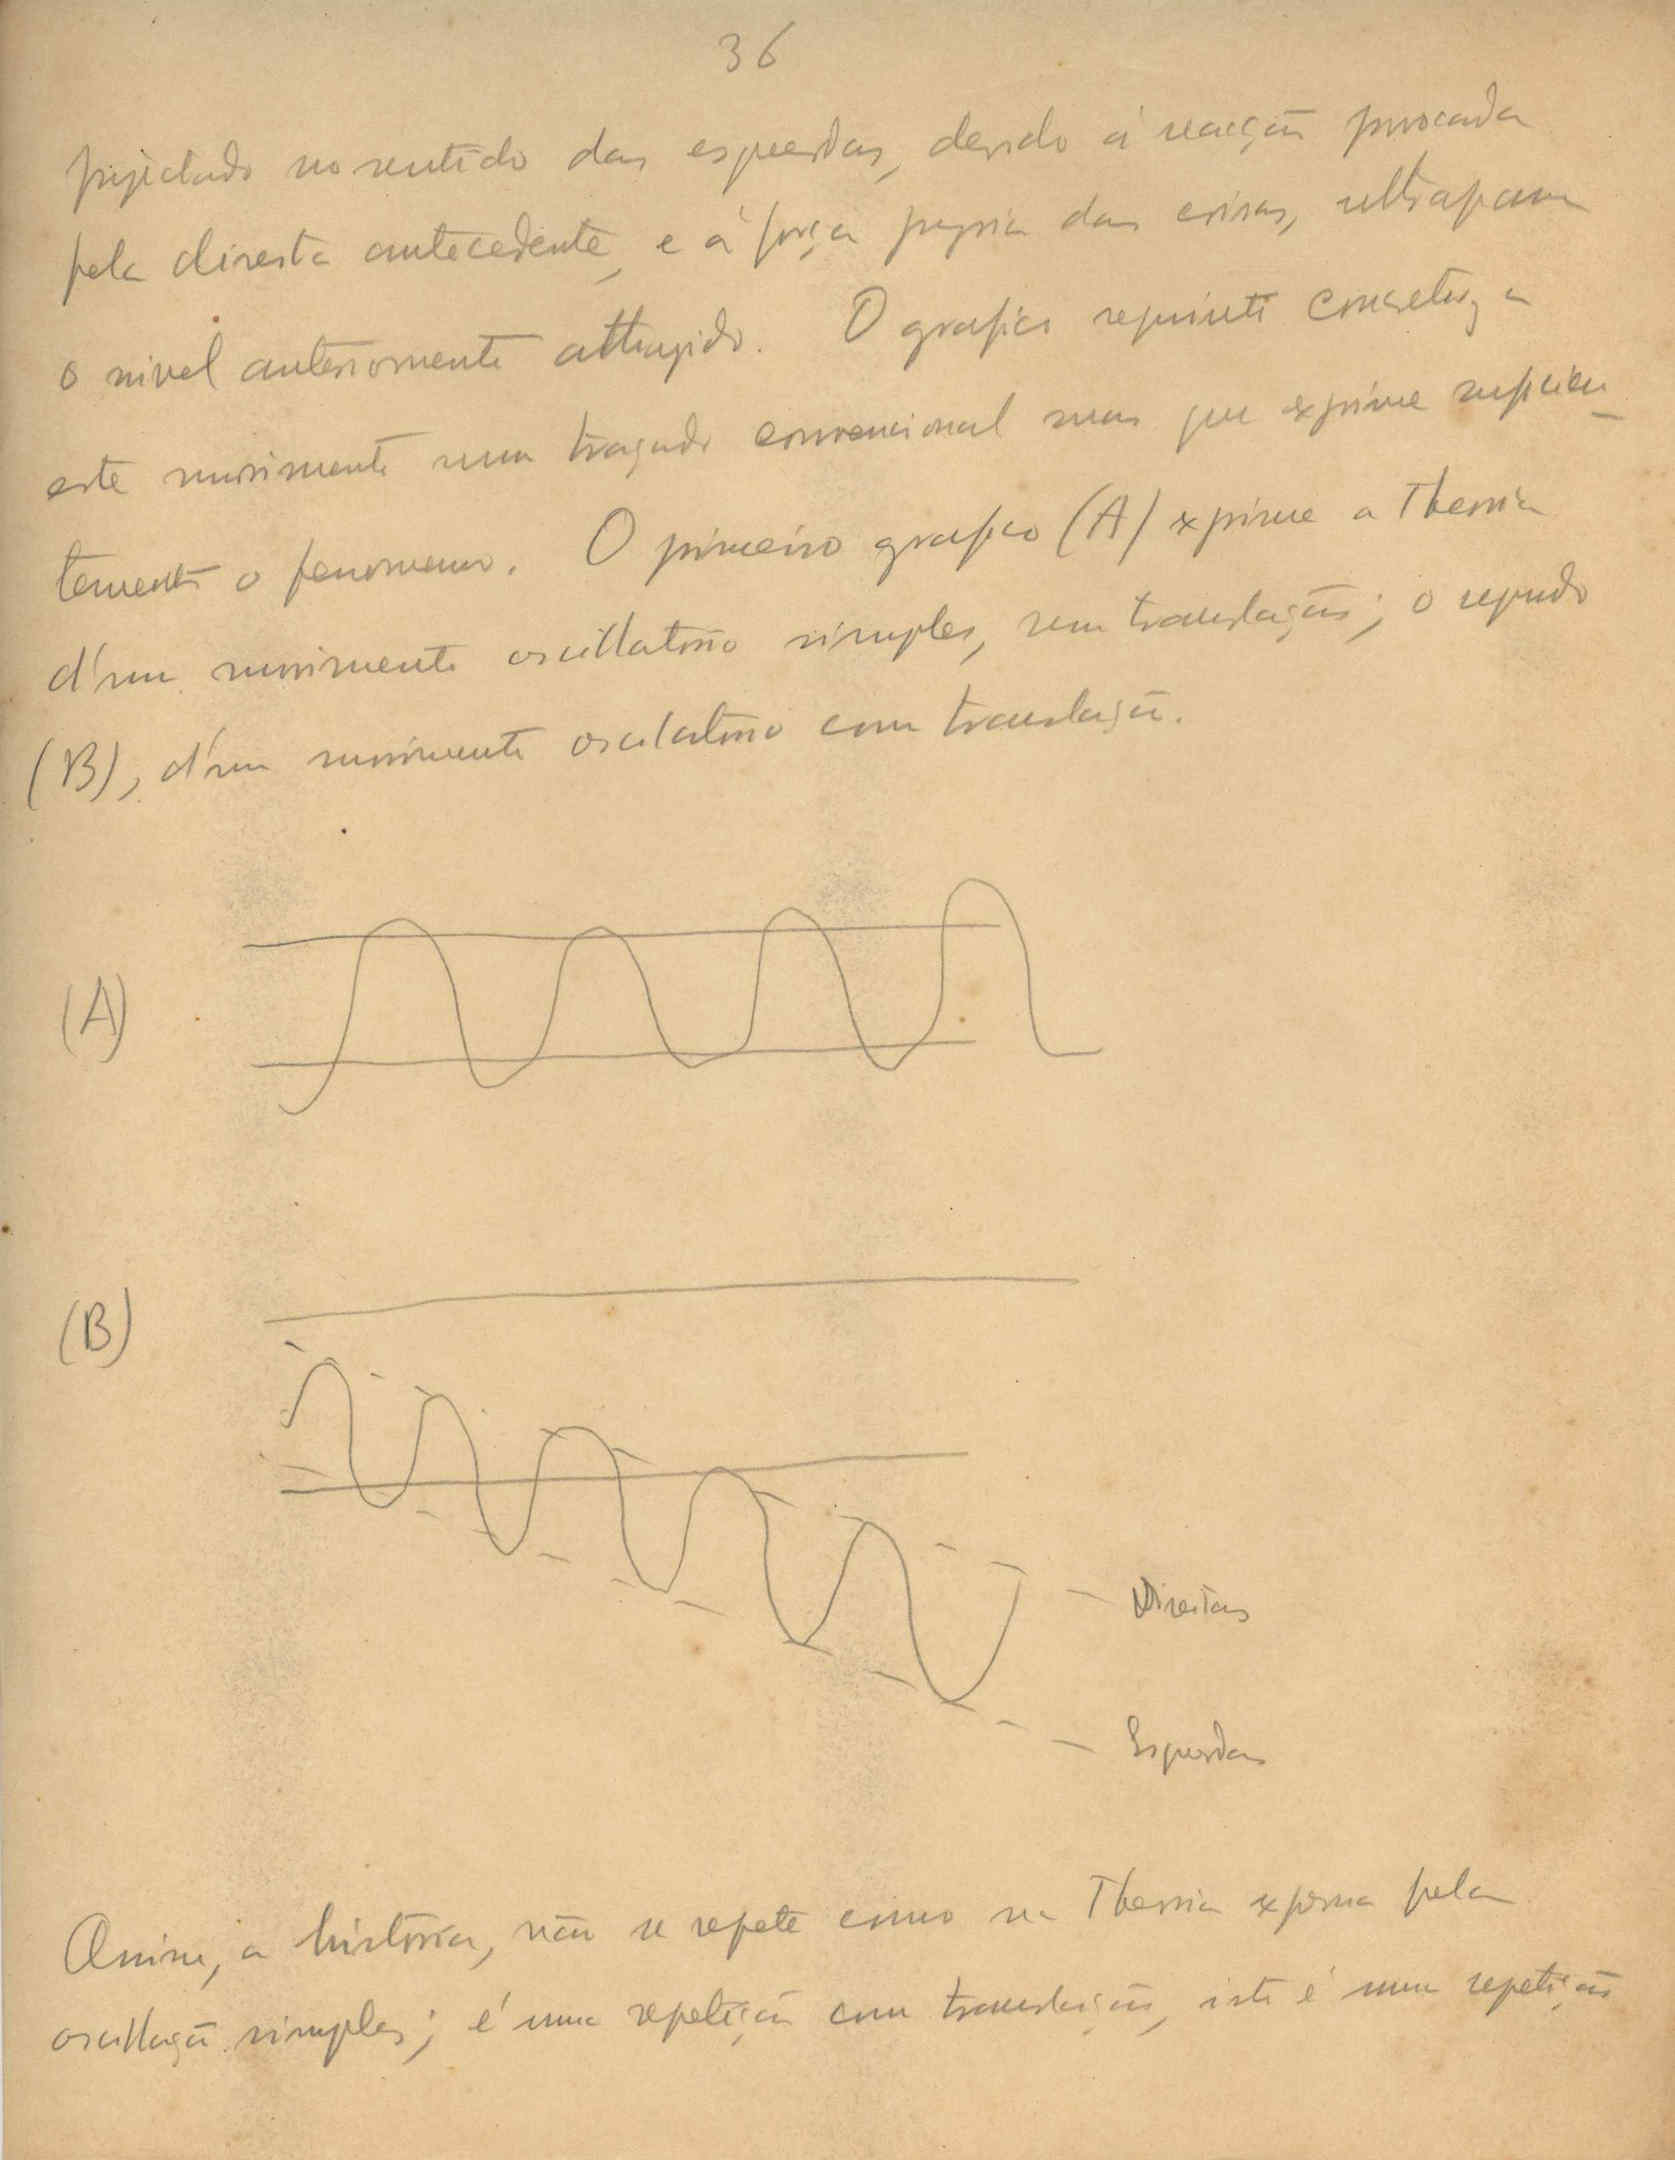 36
projectado no sentido das esquerdas, devido á reacção provocada
pela direita antecedente, e á força propria das coisas, ultrapassa
o nivel anteriormente attingido. O grafico seguinte concretiza
este movimento num traçado convencional mas que exprime suficien
temente o fenomeno. O primeiro grafico (A) exprime a Theoria
d'um movimento oscillatorio simples, sem translação; o segundo
(B), d'um movimento oscilatorio com translação.
(A)
(B)
Direitas
Esquerdas
Assim, a história, não se repete como na Theoria expressa pela
oscillação simples; é uma repetição com translação, isto é uma repetição